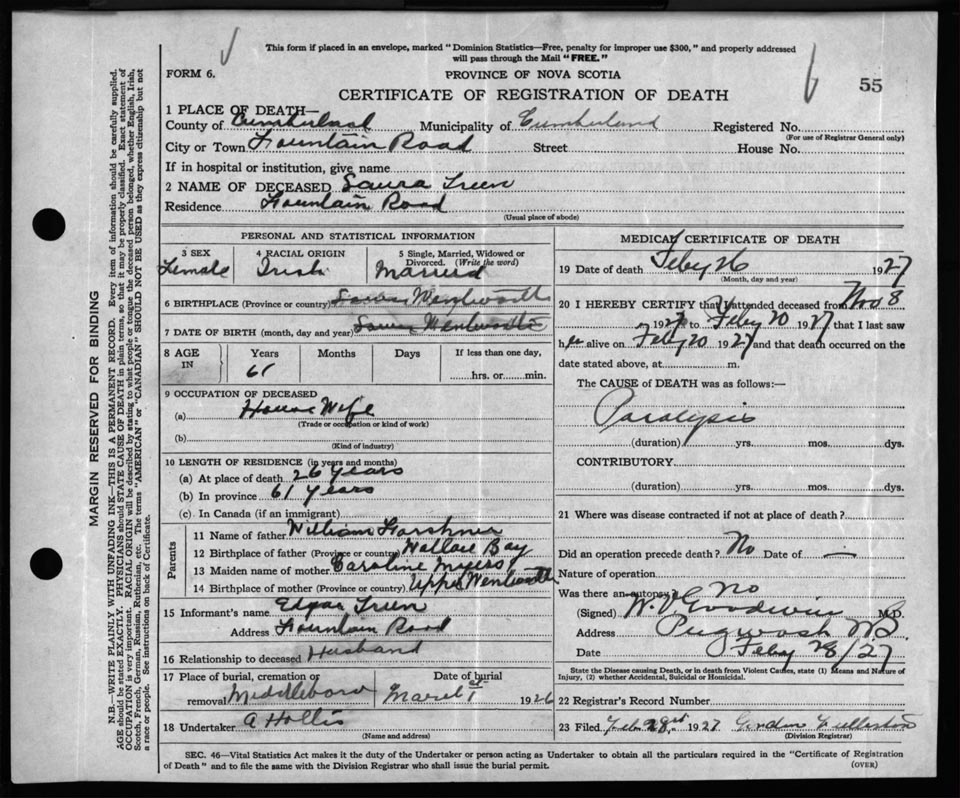 This form if placed in an envelope, marked "Dominion Statistics—Free, penalty for improper use $300," and properly addressed
will pass through the Mail "FREE."
FORM 6.
PROVINCE OF NOVA SCOTIA
55
CERTIFICATE OF REGISTRATION OF DEATH
1 PLACE OF DEATH—
County of Cumberland Municipality of Cumberland Registered No.
(For use of Registrar General only)
City or Town Fountain Road Street House No.
If in hospital or institution, give name
2 NAME OF DECEASED Laura Treen
Residence Fountain Road
(Usual place of abode)
PERSONAL AND STATISTICAL INFORMATION
3 SEX 4 RACIAL ORIGIN 5 Single, Married, Widowed or
Divorced. (Write the word)
Female Irish Married
6 BIRTHPLACE (Province or country) Lower Wentworth
7 DATE OF BIRTH (month, day and year) Lower Wentworth
8 AGE IN Years Months Days If less than one day,
61 hrs. or min.
9 OCCUPATION OF DECEASED
(a) House Wife
(Trade or occupation or kind of work)
(b)
(Kind of industry)
10 LENGTH OF RESIDENCE (in years and months)
(a) At place of death 26 years
(b) In province 61 years
(c) In Canada (if an immigrant)
Parents
11 Name of father William
12 Birthplace of father (Province or country) Wallace Bay
13 Maiden name of mother Caroline Myers
14 Birthplace of mother (Province or country) Upper Wentworth
15 Informant's name Edgar Treen
Address Fountain Road
16 Relationship to deceased Husband
17 Place of burial, cremation or Date of burial
removal Middleboro March 1st 1926
18 Undertaker A Hollis
(Name and address)
MEDICAL CERTIFICATE OF DEATH
19 Date of death Feby 26 1927
(Month, day and year)
20 I HEREBY CERTIFY that I attended deceased from Nov 8
1927 to Feby 20 1927 that I last saw
her alive on Feby 20 1927 and that death occurred on the
date stated above, at m.
The CAUSE of DEATH was as follows:—
Paralysis
(duration) yrs. mos. dys.
CONTRIBUTORY
(duration) yrs. mos. dys.
21 Where was disease contracted if not at place of death?
Did an operation precede death? No Date of —
Nature of operation
Was there an autopsy? No
(Signed) W. V. Goodwin M.D.
Address Pugwash NS
Date Feby 28/27
State the Disease causing Death, or in death from Violent Causes, state (1) Means and Nature of
Injury, (2) whether Accidental, Suicidal or Homicidal.
22 Registrar's Record Number
23 Filed Feb. 28 1927 Gordon
(Division Registrar)
SEC. 46—Vital Statistics Act makes it the duty of the Undertaker or person acting as Undertaker to obtain all the particulars required in the "Certificate of Registration
of Death" and to file the same with the Division Registrar who shall issue the burial permit.
(OVER)
MARGIN RESERVED FOR BINDING
N.B.—WRITE PLAINLY WITH UNFADING INK—THIS IS A PERMANENT RECORD. Every item of information should be carefully supplied.
AGE should be stated EXACTLY. PHYSICIANS should STATE CAUSE OF DEATH in plain terms, so that it may be properly classified. Exact statement of
OCCUPATION is very important. RACIAL ORIGIN will be described by stating to what people or tongue the deceased person belonged, whether English, Irish,
Scotch, French, German, Russian, Ruthenian, etc. The terms "AMERICAN" or "CANADIAN" SHOULD NOT BE USED as they express citizenship but not
a race or people. See instructions on back of Certificate.